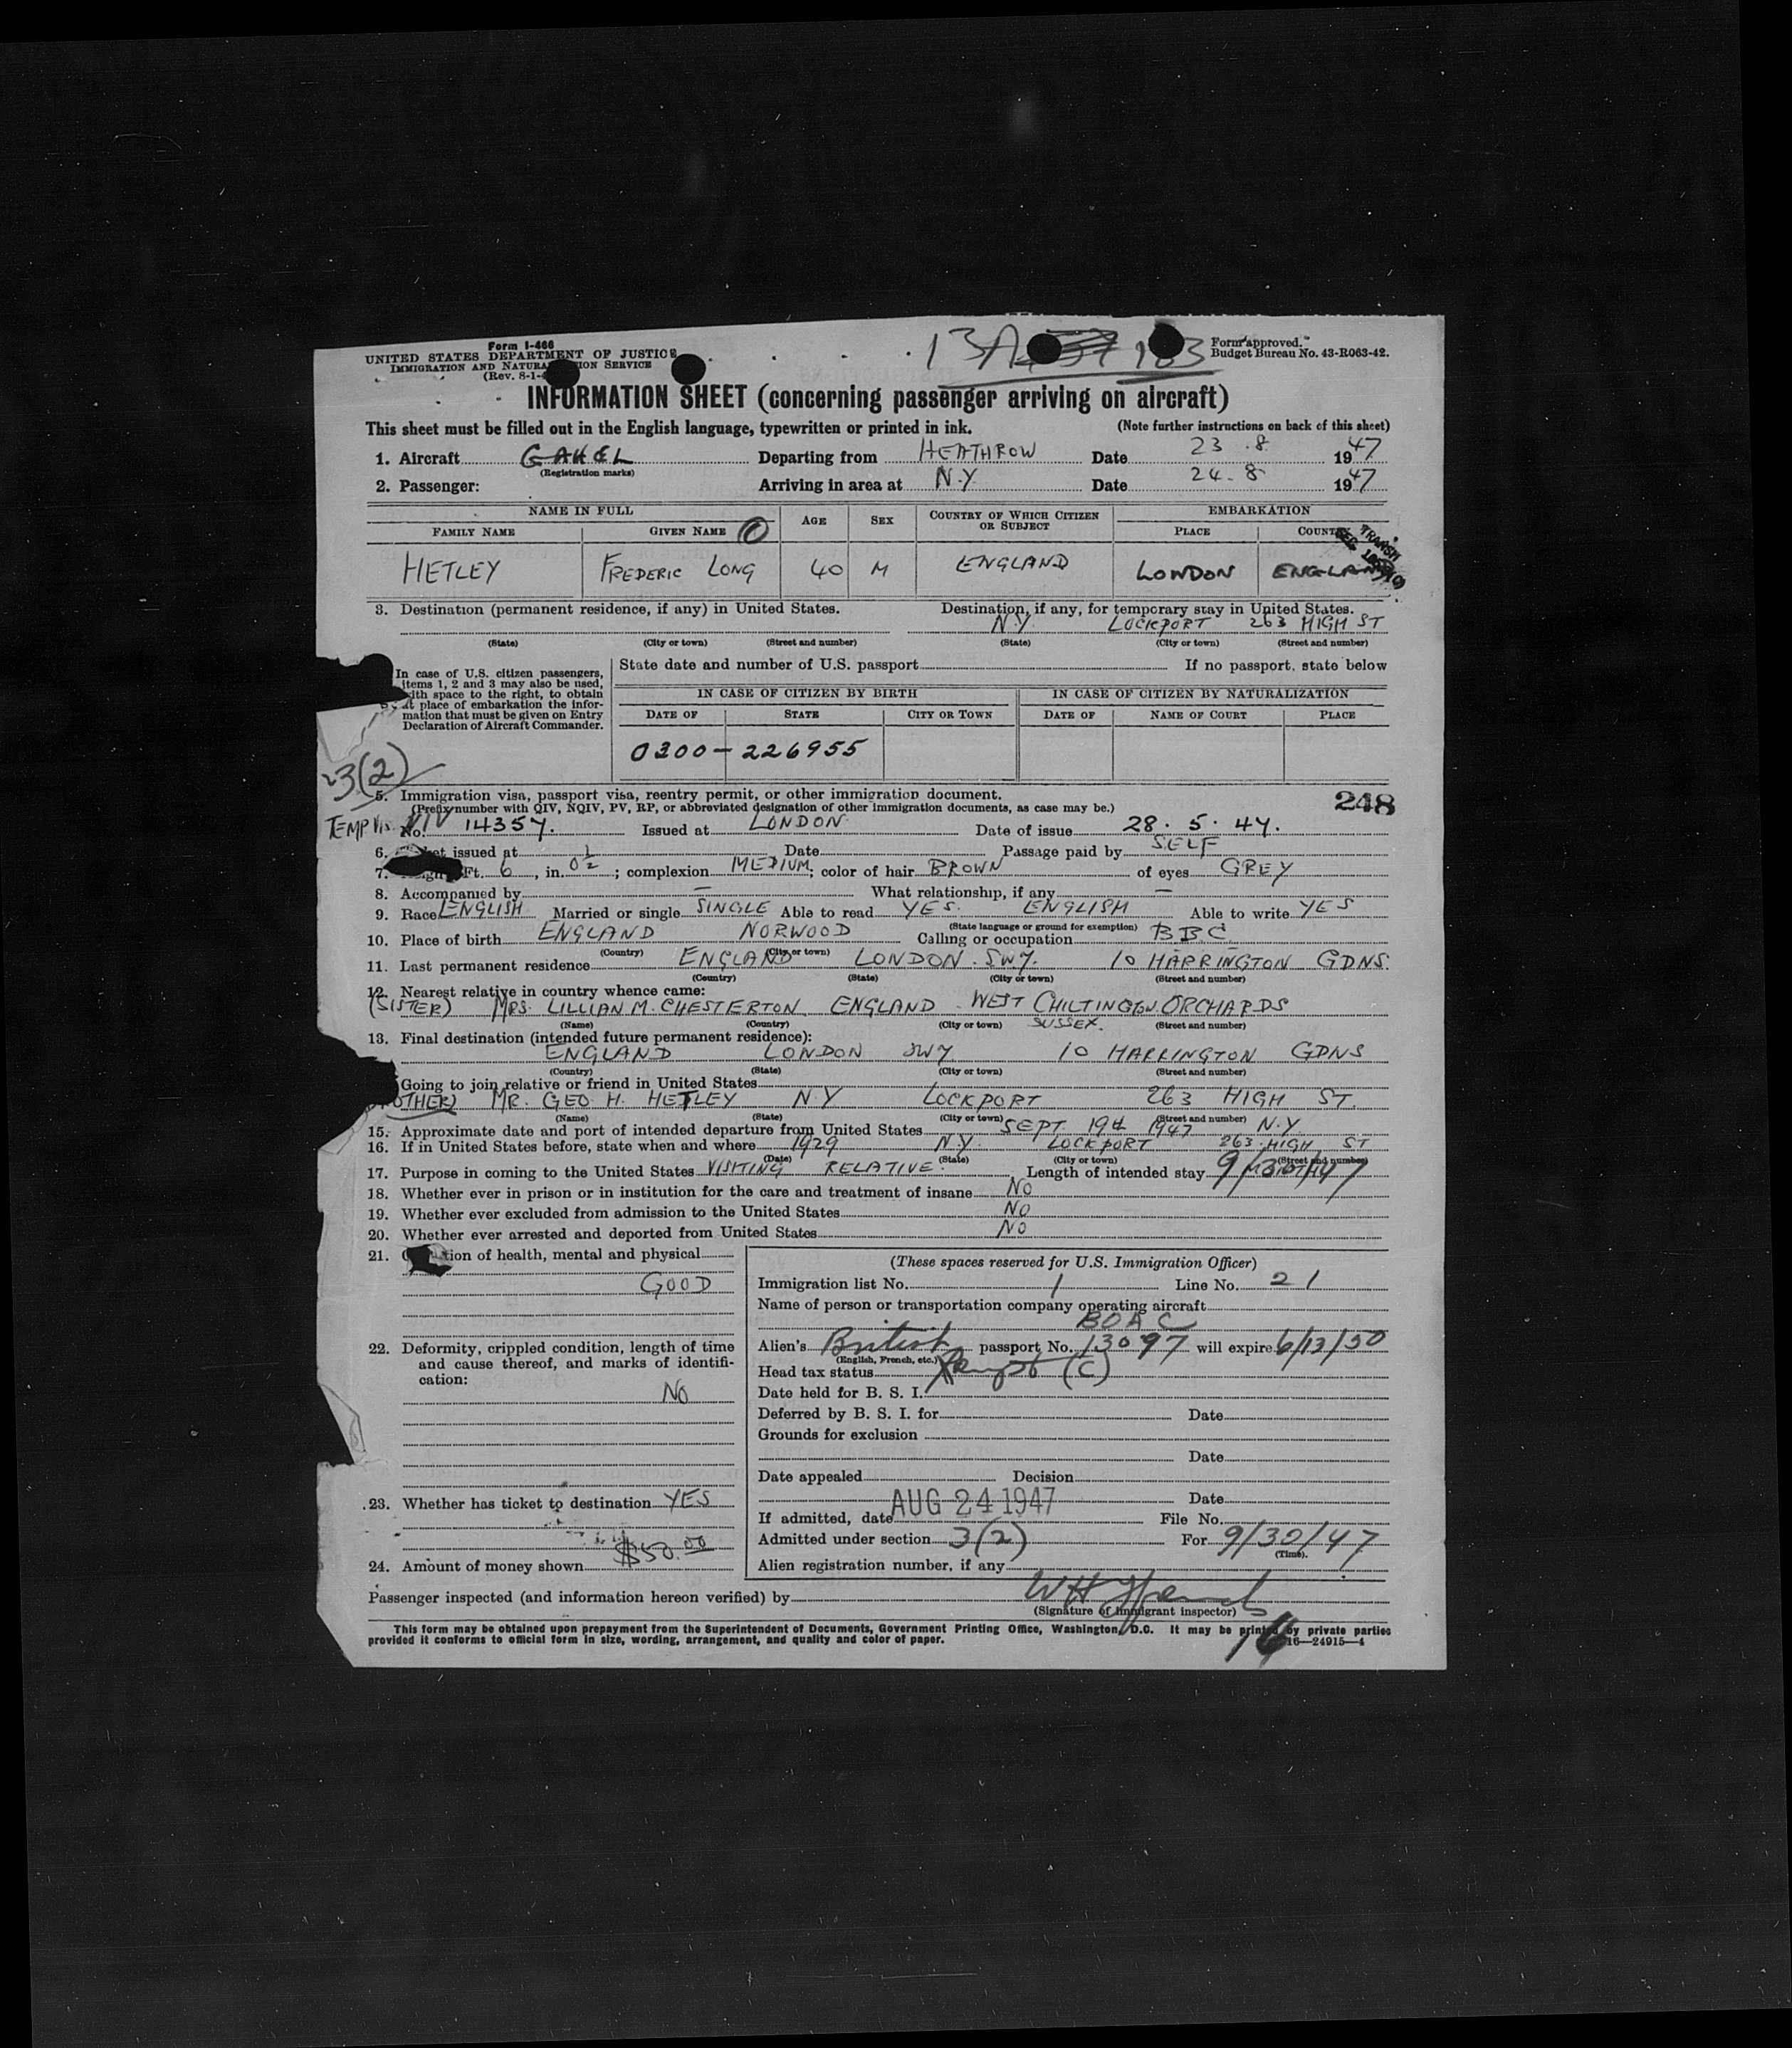 Form I-466
UNITED STATES DEPARTMENT OF JUSTICE
IMMIGRATION AND NATURALIZATION SERVICE
(Rev. 8-1-4
13A 163
Form approved.
Budget Bureau No. 43-R063-42.
INFORMATION SHEET (concerning passenger arriving on aircraft)
This sheet must be filled out in the English language, typewritten or printed in ink. (Note further instructions on back of this sheet)
1. Aircraft GAHEL Departing from HEATHROW Date 23.8. 1947
(Registration marks)
2. Passenger: Arriving in area at N.Y Date 24.8 1947
NAME IN FULL AGE SEX COUNTRY OF WHICH CITIZEN OR SUBJECT EMBARKATION
FAMILY NAME GIVEN NAME PLACE COUNTRY
HETLEY FREDERIC LONG 40 M ENGLAND LONDON ENGLAND
3. Destination (permanent residence, if any) in United States. Destination, if any, for temporary stay in United States.
N.Y LOCKPORT 263 HIGH ST
(State) (City or town) (Street and number) (State) (City or town) (Street and number)
In case of U.S. citizen passengers, items 1, 2 and 3 may also be used, with space to the right, to obtain at place of embarkation the information that must be given on Entry Declaration of Aircraft Commander.
State date and number of U.S. passport If no passport, state below
IN CASE OF CITIZEN BY BIRTH IN CASE OF CITIZEN BY NATURALIZATION
DATE OF STATE CITY OR TOWN DATE OF NAME OF COURT PLACE
0300-226955
3(2)
5. Immigration visa, passport visa, reentry permit, or other immigration document. 248
(Prefix number with QIV, NQIV, PV, RP, or abbreviated designation of other immigration documents, as case may be.)
TEMP VIS. No. 14357. Issued at LONDON Date of issue 28.5.47.
6. Ticket issued at Date Passage paid by SELF
7. Height Ft. 6, in. 0½; complexion MEDIUM; color of hair BROWN of eyes GREY
8. Accompanied by — What relationship, if any —
9. Race ENGLISH Married or single SINGLE Able to read YES. ENGLISH Able to write YES
(State language or ground for exemption)
10. Place of birth ENGLAND NORWOOD Calling or occupation BBC
(Country) (City or town)
11. Last permanent residence ENGLAND LONDON. SW7. 10 HARRINGTON GDNS.
(Country) (State) (City or town) (Street and number)
12. Nearest relative in country whence came:
(SISTER) MRS. LILLIAN M. CHESTERTON ENGLAND WEST CHILTINGTON ORCHARDS
(Name) (Country) (City or town) SUSSEX. (Street and number)
13. Final destination (intended future permanent residence):
ENGLAND LONDON SW7 10 HARRINGTON GDNS
(Country) (State) (City or town) (Street and number)
Going to join relative or friend in United States
OTHER) MR. GEO H. HETLEY N.Y LOCKPORT 263 HIGH ST.
(Name) (State) (City or town) (Street and number)
15. Approximate date and port of intended departure from United States SEPT 19th 1947 N.Y
16. If in United States before, state when and where 1929 N.Y LOCKPORT 263 HIGH ST
(Date) (State) (City or town) (Street and number)
17. Purpose in coming to the United States VISITING RELATIVE. Length of intended stay 9/30/47
18. Whether ever in prison or in institution for the care and treatment of insane NO
19. Whether ever excluded from admission to the United States NO
20. Whether ever arrested and deported from United States NO
21. Condition of health, mental and physical
GOOD
22. Deformity, crippled condition, length of time and cause thereof, and marks of identification:
NO
23. Whether has ticket to destination YES
24. Amount of money shown $50.00
(These spaces reserved for U.S. Immigration Officer)
Immigration list No. 1 Line No. 21
Name of person or transportation company operating aircraft
BOAC
Alien's British passport No. 13097 will expire 6/13/50
(English, French, etc.)
Head tax status (C)
Date held for B. S. I.
Deferred by B. S. I. for Date
Grounds for exclusion
Date
Date appealed Decision
Date
If admitted, date AUG 24 1947 File No.
Admitted under section 3(2) For 9/30/47
(Time).
Alien registration number, if any
Passenger inspected (and information hereon verified) by
(Signature of immigrant inspector)
This form may be obtained upon prepayment from the Superintendent of Documents, Government Printing Office, Washington, D.C. It may be printed by private parties
provided it conforms to official form in size, wording, arrangement, and quality and color of paper. 16—24915—4